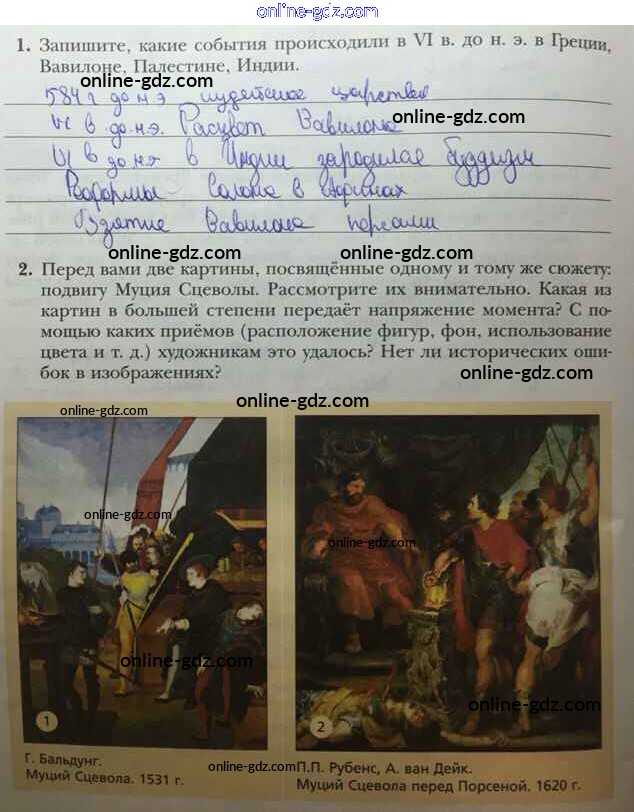 online-gdz.com
1. Запишите, какие события происходили в VI в. до н. э. в Греции,
Вавилоне, Палестине, Индии.
online-gdz.com
584 г до н э иудейское царство
online-gdz.com
VI в до.н.э. Расцвет Вавилона
VI в до нэ в Индии зародился буддизм
Реформы Солона в Афинах
Взятие Вавилона персами
online-gdz.com
online-gdz.com
2. Перед вами две картины, посвящённые одному и тому же сюжету:
подвигу Муция Сцеволы. Рассмотрите их внимательно. Какая из
картин в большей степени передаёт напряжение момента? С по-
мощью каких приёмов (расположение фигур, фон, использование
цвета и т. д.) художникам это удалось? Нет ли исторических оши-
бок в изображениях?
online-gdz.com
online-gdz.com
online-gdz.com
online-gdz.com
online-gdz.com
online-gdz.com
online-gdz.com
1
2
Г. Бальдунг.
Муций Сцевола. 1531 г.
online-gdz.com
П.П. Рубенс, А. ван Дейк.
Муций Сцевола перед Порсеной. 1620 г.